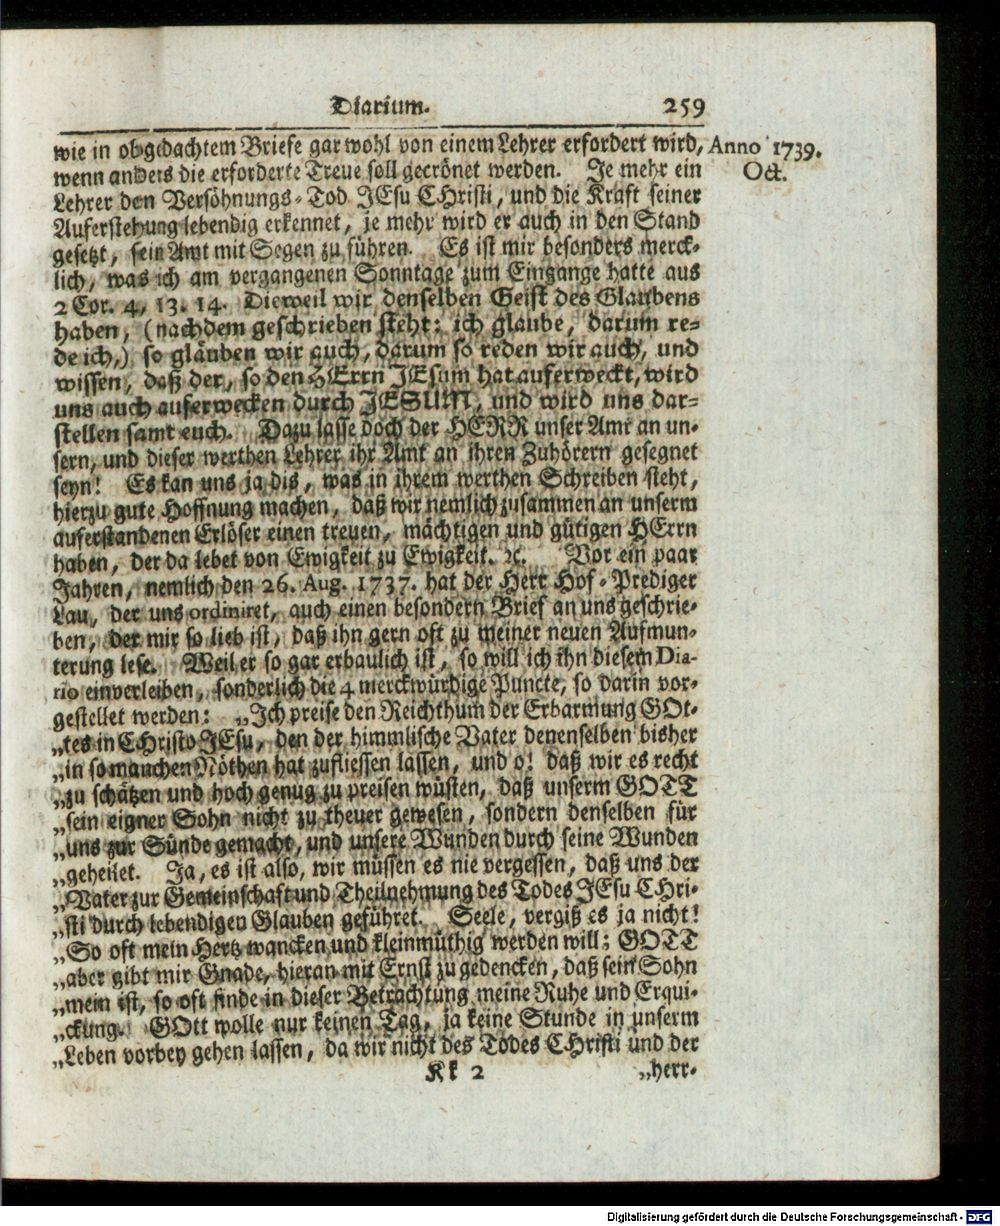 Diarium. 259
wie in obgedachtem Briefe gar wohl von einem Lehrer erfordert wird, Anno 1739.
wenn anders die erforderte Treue soll gecrönet werden. Je mehr ein Oct.
Lehrer den Versöhnungs-Tod JEsu CHristi, und die Kraft seiner
Auferstehung lebendig erkennet, je mehr wird er auch in den Stand
gesetzt, sein Amt mit Segen zu führen. Es ist mir besonders merck-
lich, was ich am vergangenen Sonntage zum Eingange hatte aus
2 Cor. 4, 13. 14. Dieweil wir denselben Geist des Glaubens
haben, (nachdem geschrieben steht: ich glaube, darum re-
de ich,) so gläuben wir auch, darum so reden wir auch, und
wissen, daß der, so den HErrn JEsum hat auferweckt, wird
uns auch auferwecken durch JESUM, und wird uns dar-
stellen samt euch. Dazu lasse doch der HERR unser Amt an un-
sern, und dieser werthen Lehrer ihr Amt an ihren Zuhörern gesegnet
seyn! Es kan uns ja dis, was in ihrem werthen Schreiben steht,
hierzu gute Hoffnung machen, daß wir nemlich zusammen an unserm
auferstandenen Erlöser einen treuen, mächtigen und gütigen HErrn
haben, der da lebet von Ewigkeit zu Ewigkeit. ꝛc. Vor ein paar
Jahren, nemlich den 26. Aug. 1737. hat der Herr Hof-Prediger
Lau, der uns ordiniret, auch einen besondern Brief an uns geschrie-
ben, der mir so lieb ist, daß ihn gern oft zu meiner neuen Aufmun-
terung lese. Weil er so gar erbaulich ist, so will ich ihn diesem Dia-
rio einverleiben, sonderlich die 4 merckwürdige Puncte, so darin vor-
gestellet werden: „Ich preise den Reichthum der Erbarmung GOt-
„tes in CHristo JEsu, den der himmlische Vater denenselben bisher
„in so manchen Nöthen hat zufliessen lassen, und o! daß wir es recht
„zu schätzen und hoch genug zu preisen wüsten, daß unserm GOTT
„sein eigner Sohn nicht zu theuer gewesen, sondern denselben für
„uns zur Sünde gemacht, und unsere Wunden durch seine Wunden
„geheilet. Ja, es ist also, wir müssen es nie vergessen, daß uns der
„Vater zur Gemeinschaft und Theilnehmung des Todes JEsu CHri-
„sti durch lebendigen Glauben geführet. Seele, vergiß es ja nicht!
„So oft mein Hertz wancken und kleinmüthig werden will; GOTT
„aber gibt mir Gnade, hieran mit Ernst zu gedencken, daß sein Sohn
„mein ist, so oft finde in dieser Betrachtung meine Ruhe und Erqui-
„ckung. GOtt wolle nur keinen Tag, ja keine Stunde in unserm
„Leben vorbey gehen lassen, da wir nicht des Todes CHristi und der
Kk 2 „herr-
Digitalisierung gefördert durch die Deutsche Forschungsgemeinschaft - DFG